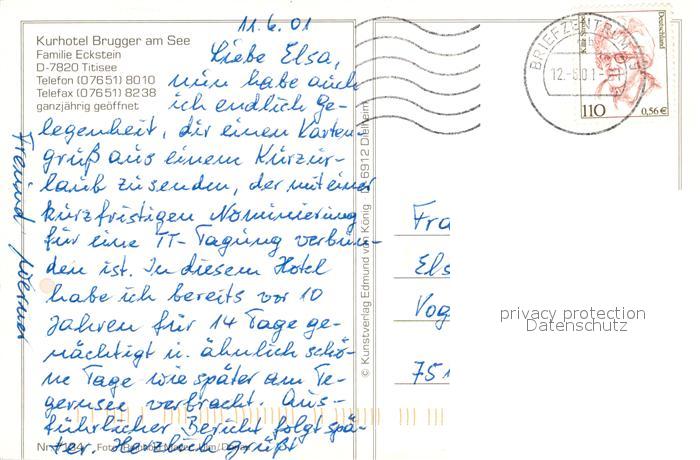 11.6.01
Kurhotel Brugger am See
Familie Eckstein
D-7820 Titisee
Telefon (07651) 8010
Telefax (07651) 8238
ganzjährig geöffnet
Liebe Elsa,
nun habe auch
ich endlich Ge-
legenheit, dir einen Karten-
gruß aus einem Kurzur-
laub zu senden, der mit einer
kurzfristigen Nominierung
für eine TT-Tagung verbun-
den ist. In diesem Hotel
habe ich bereits vor 10
Jahren für 14 Tage ge-
nächtigt u. ähnlich schö-
ne Tage wie später am Te-
gernsee verbracht. Aus-
führlicher Bericht folgt spä-
ter. Herzlich grüßt
Freund Werner
© Kunstverlag Edmund von König · D-6912 Dielheim
BRIEFZENTRUM
12.-6.01
Deutschland
110
0,56 €
Fra
Els
Vog
75
privacy protection
Datenschutz